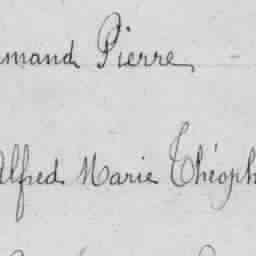 rmand Pierre
Alfred Marie Théoph